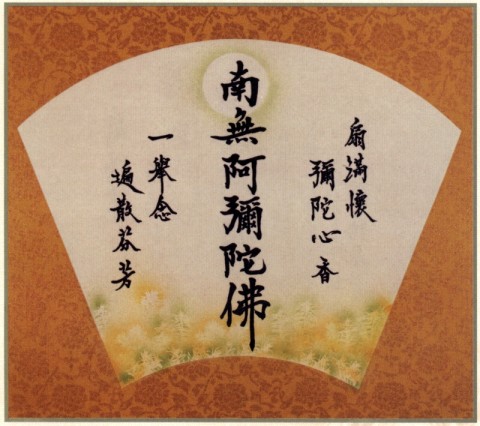 扇滿懷
彌陀心香
南無阿彌陀佛
一舉念
遍散芬芳